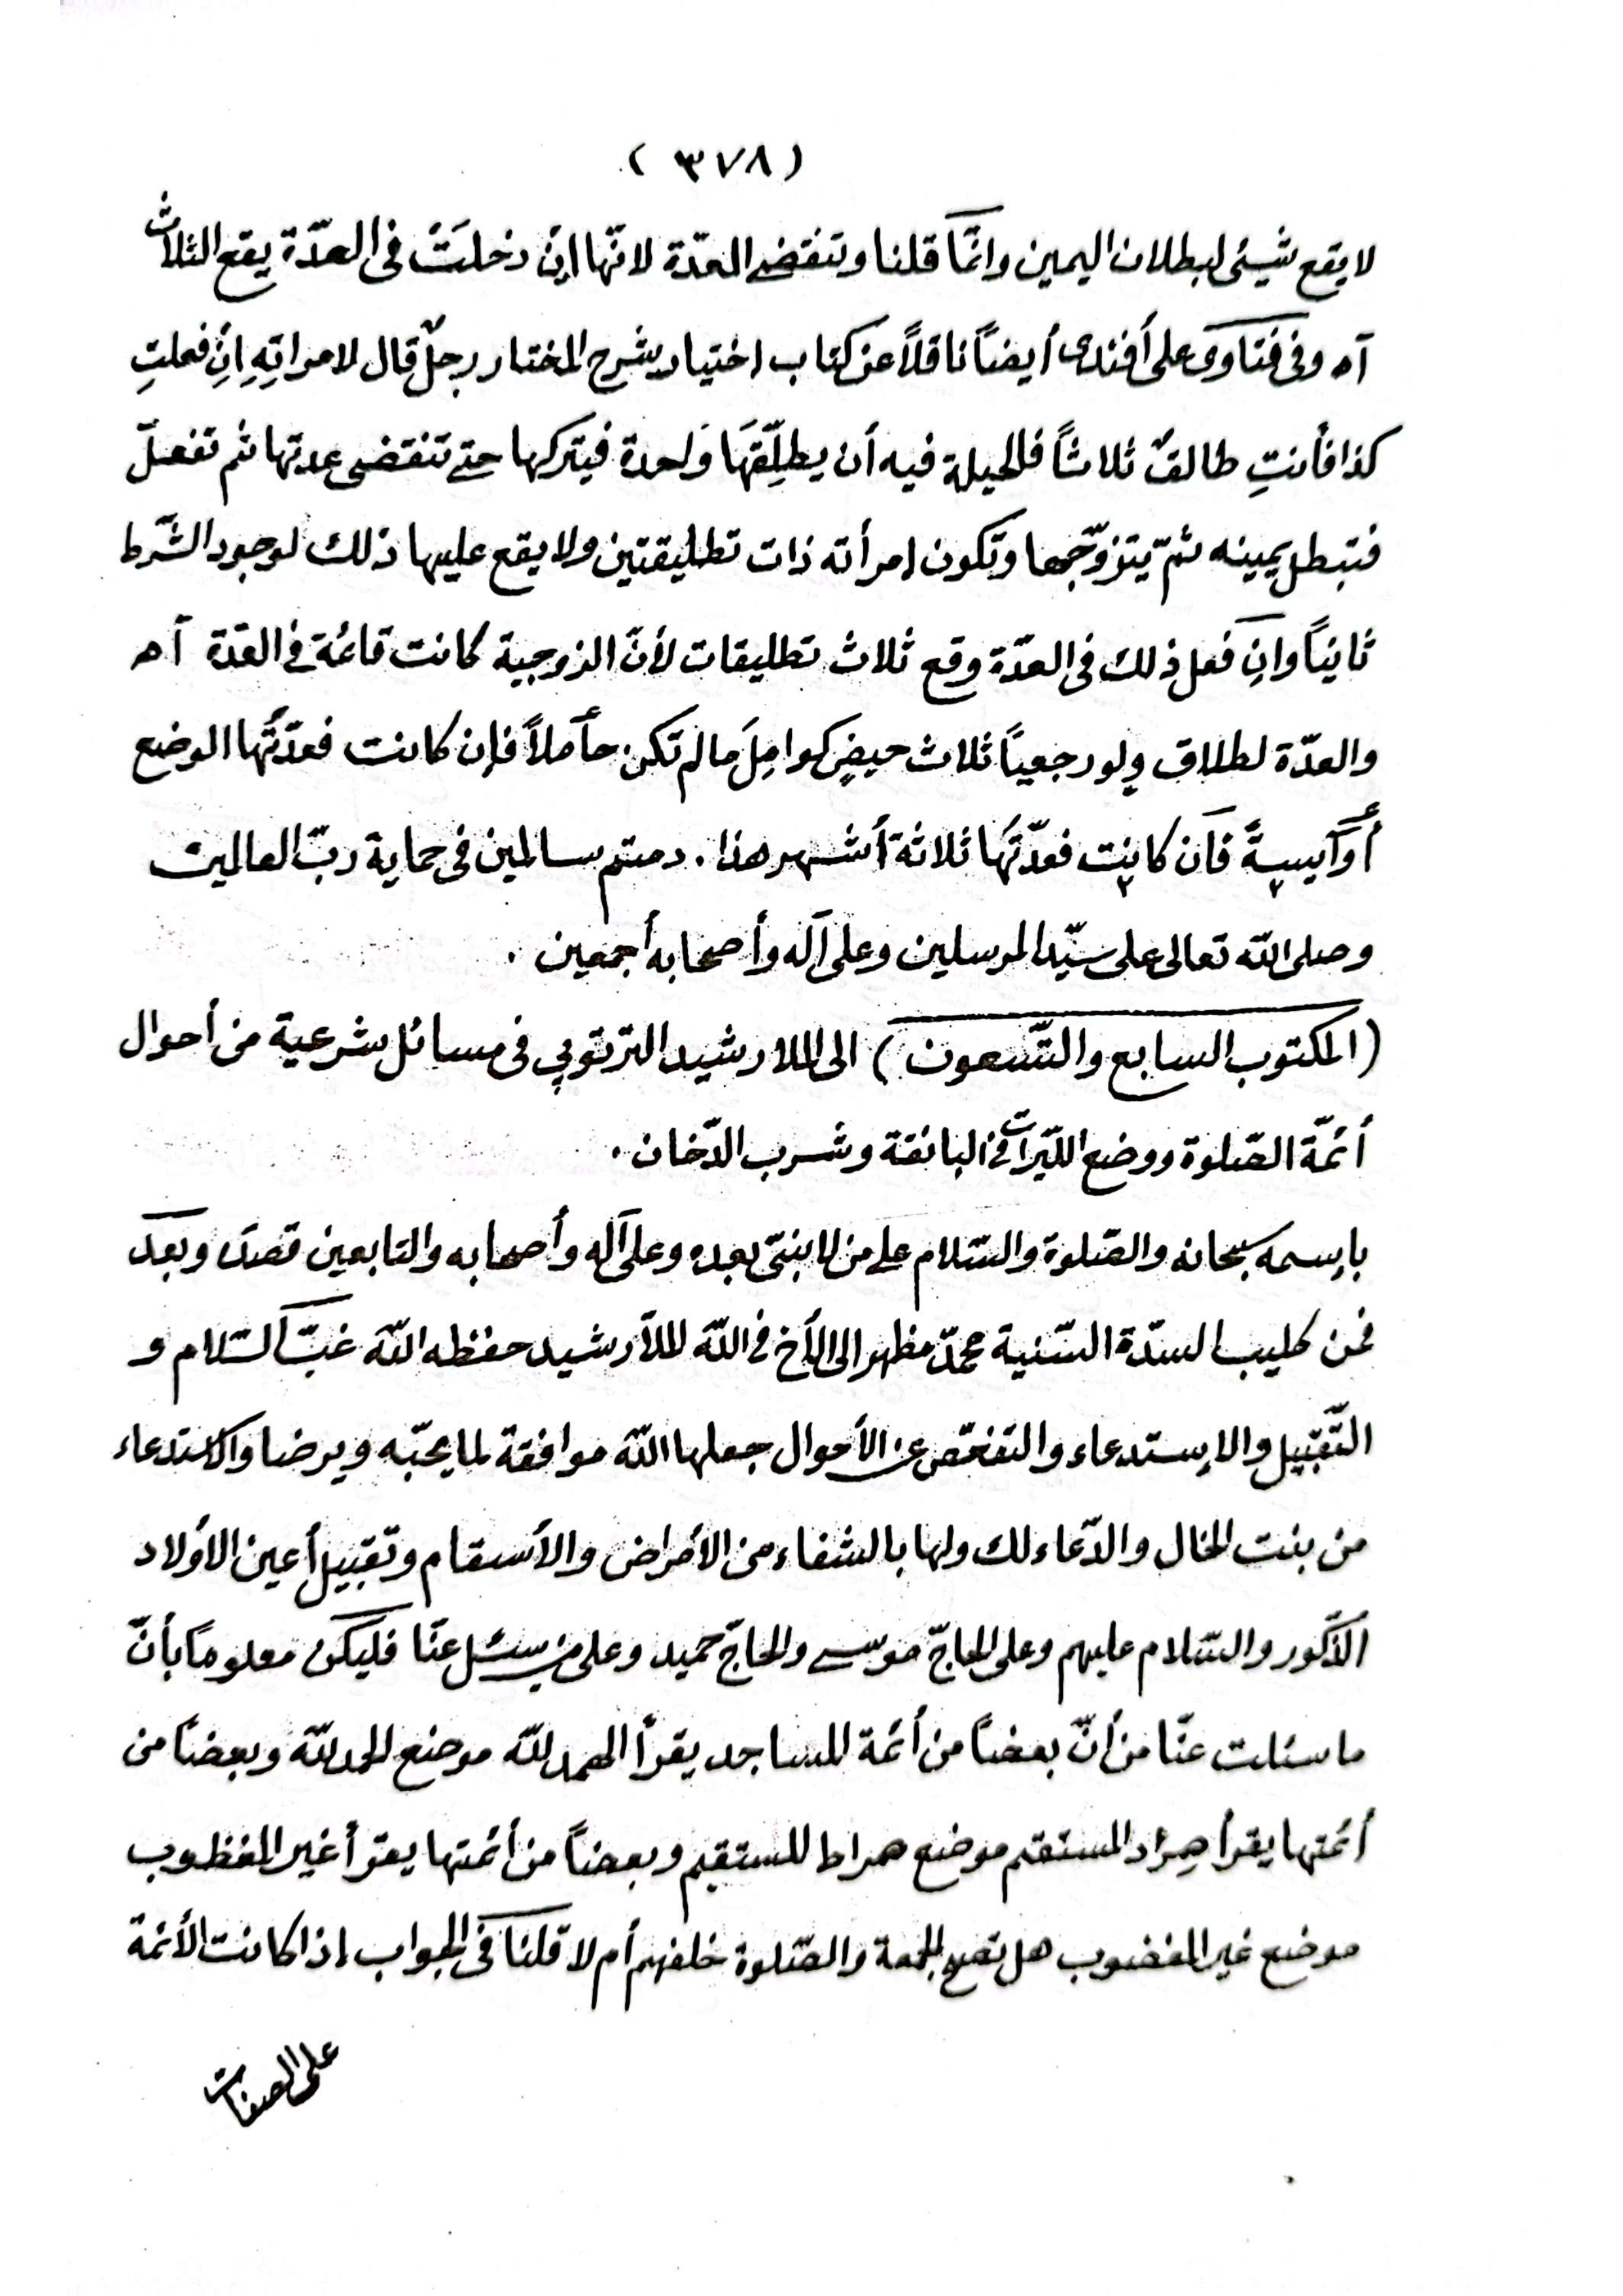 ( ٣٧٨ )
لا يقع شيئى لبطلان اليمين وانّما قلنا وتنقضى العدّة لانّها إن دخلَتْ فى العدّة يقع الثلاث
آه وفى فتاوى على أفندى أيضاً ناقلاً عن كتاب اختيار شرح المختار رجلٌ قال لامراتِهِ اِنْ فعلتِ
كذا فأنتِ طالقٌ ثلاثاً فالحيلة فيه أن يطلِّقَهَا وَاحدة فيتركها حتى تنقضى عدتها ثم تفعلْ
فتبطل يمينه ثمّ يتزوّجها وتكون امرأته ذات تطليقتين ولا يقع عليها ذلك لوجود الشّرط
ثانياً وان فعل ذلك فى العدّة وقع ثلاث تطليقات لأنّ الزوجية كانت قائمة فى العدّة آه
والعدّة لطلاق ولو رجعياً ثلاث حيضٍ كوامِلَ ما لم تكن حاملاً فإن كانت فعدّتُها الوضع
أو آيسةً فان كانت فعدّتها ثلاثة أشهر هذا . دمتم سالمين فى حماية ربّ العالمين
وصلى اللّه تعالى على سيّد المرسلين وعلى آله وأصحابه أجمعين .
( المكتوب السابع والتّسعون ) الى الملا رشيد الترتوپى فى مسائل شرعية من أحوال
أئمّة الصّلوة ووضع اللّيرات فى البانقة وشرب الدّخان .
باِسمه سبحانه والصّلوة والسّلام على من لا نبىّ بعده وعلى آله وأصحابه والتابعين قصدَه وبعد
فمن كليب السدّة السّنية محمّد مظهر الى الأخ فى اللّه الملّا رشيد حفظه اللّه غبّ السّلام و
التّقبيل والاِستدعاء والتفحّص عن الأحوال جعلها اللّه موافقة لما يحبّه ويرضا والاستدعاء
من بنت الخال والدّعاء لك ولها بالشفاء من الأمراض والأسقام وتقبيل أعين الأولاد
الذّكور والسّلام عليهم وعلى الحاجّ موسى والحاجّ حميد وعلى من يسئل عنّا فليكن معلوماً بأنّ
ما سئلت عنّا من أنّ بعضاً من أئمة المساجد يقرأ الهمد للّه موضع الحمد للّه وبعضاً من
أئمتها يقرأ هِراد المستقم موضع صراط المستقيم وبعضاً من أئمتها يقرأ غير المغظوب
موضع غير المغضوب هل تصح الجمعة والصّلوة خلفهم أم لا قلنا فى الجواب اذا كانت الأئمة
على الصفات